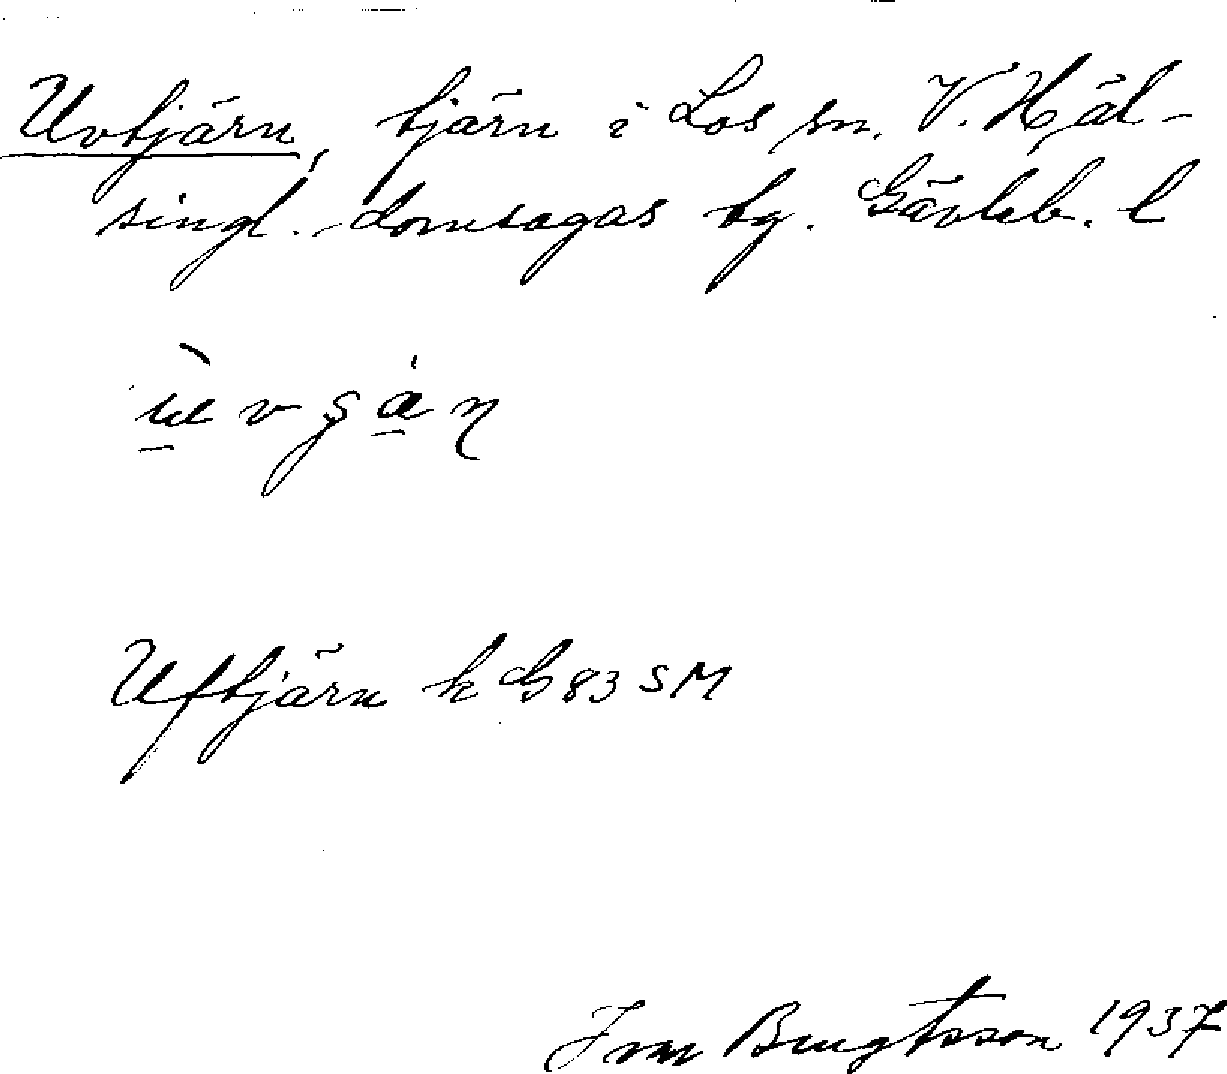 Uvtjärn, tjärn i Los sn. V. Häl-
singl. domsagas tg. Gävleb. l
Uftjärn k G 83 SM
Ivar Bengtsson 1937